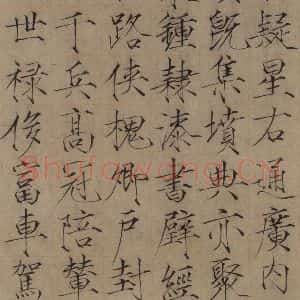 疑星右通廣内
既集墳典亦聚
鍾隸漆書壁經
路俠槐卿戶封
千兵髙冠陪輦
世祿侈富車駕
Shufawang.CN